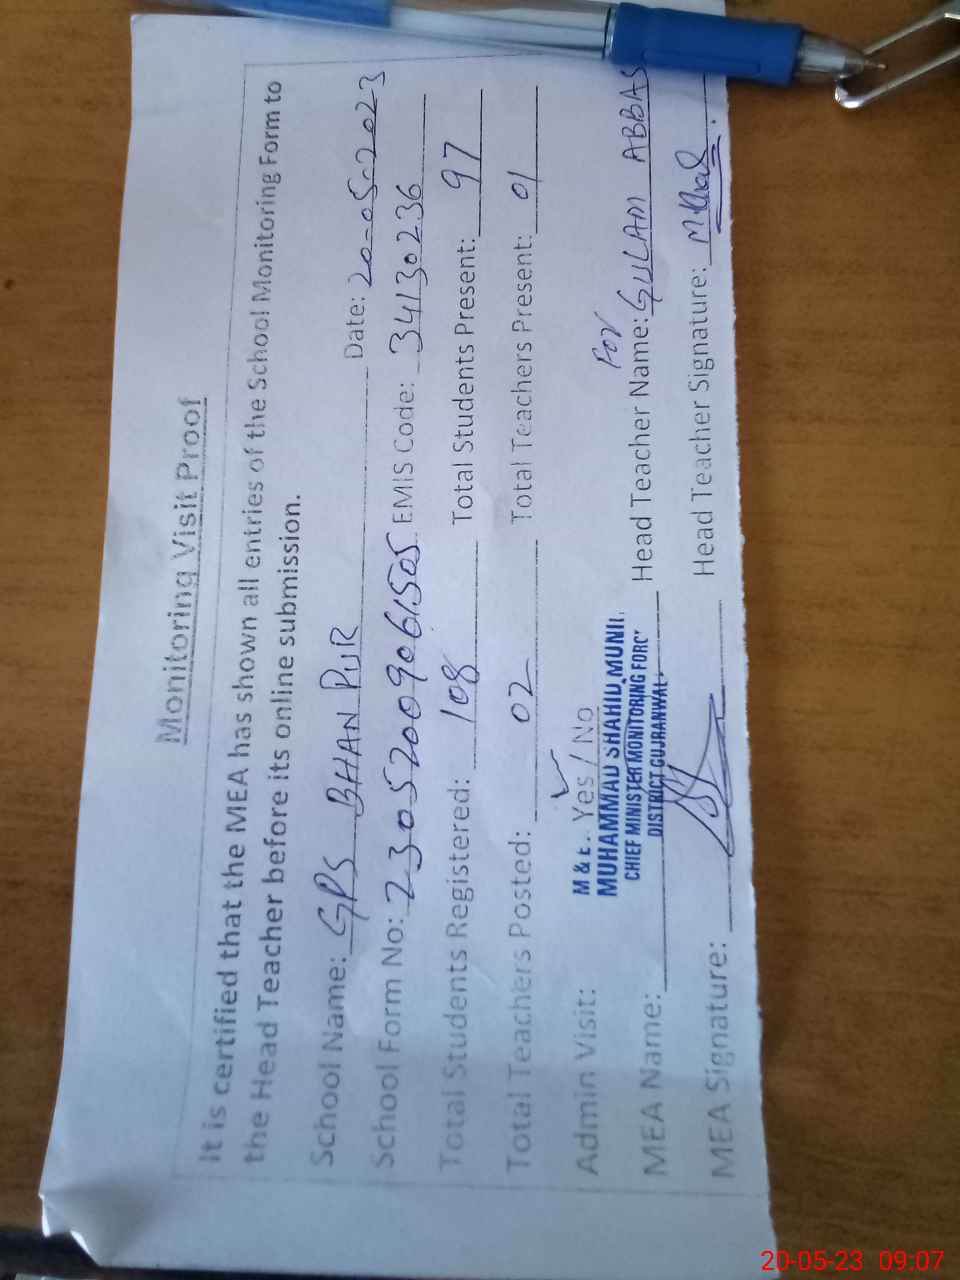 Monitoring Visit Proof
It is certified that the MEA has shown all entries of the School Monitoring Form to
the Head Teacher before its online submission.
School Name: GPS BHAN PUR Date: 20-05-2023
School Form No: 23052009061505 EMIS Code: 34130236
Total Students Registered: 108 Total Students Present: 97
Total Teachers Posted: 02 Total Teachers Present: 01
Admin Visit: Yes / No
M & E
MUHAMMAD SHAHID MUNI
CHIEF MINISTER MONITORING FORC
DISTRICT GUJRANWAL
For
MEA Name: Head Teacher Name: GULAM ABBAS
MEA Signature: Head Teacher Signature:
20-05-23 09:07